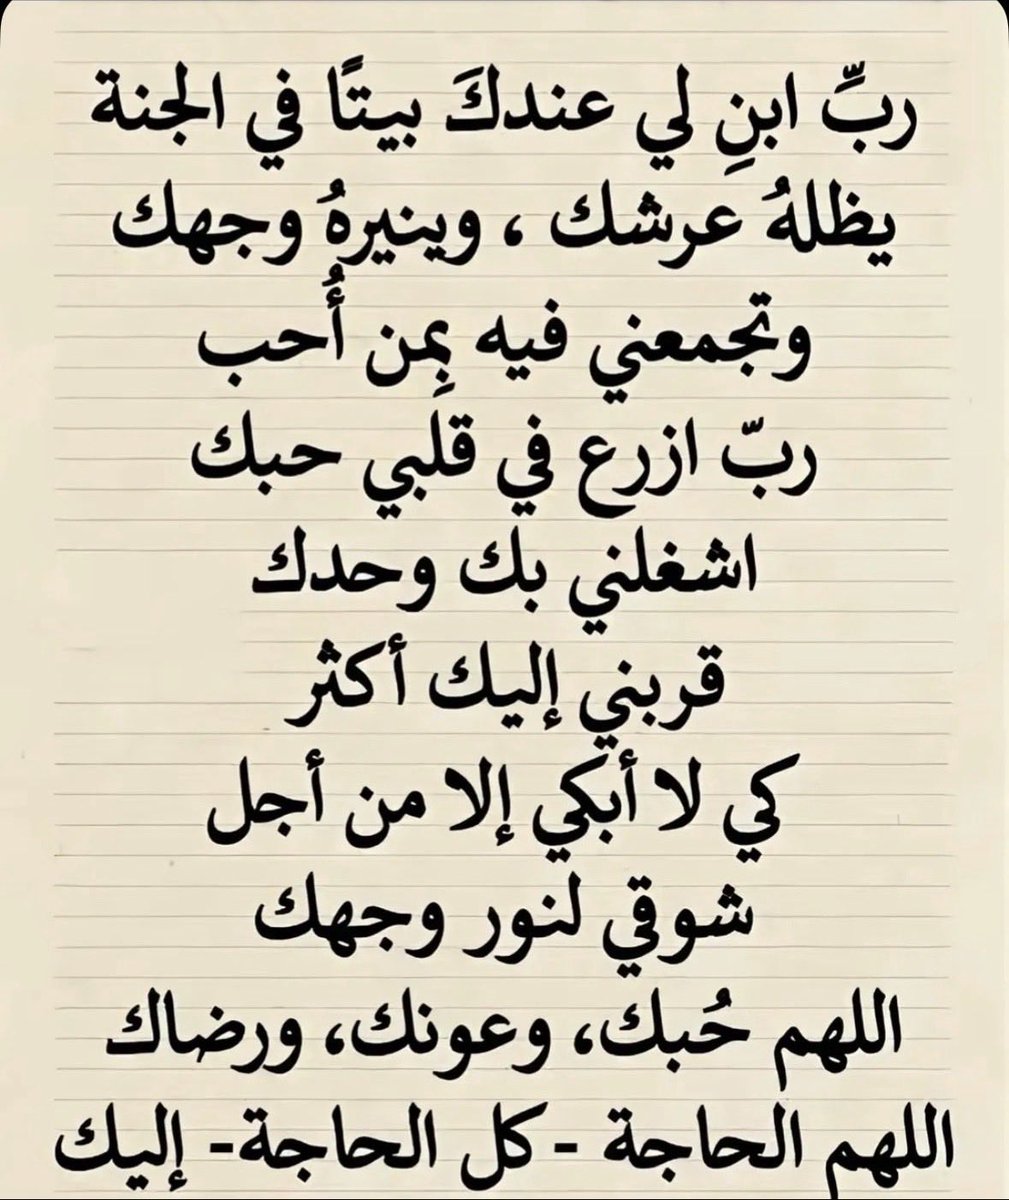 ربِّ ابنِ لي عندكَ بيتًا في الجنة
يظلهُ عرشك ، وينيرهُ وجهك
وتجمعني فيه بِمن أُحب
ربّ ازرع في قلبي حبك
اشغلني بك وحدك
قربني إليك أكثر
كي لا أبكي إلا من أجل
شوقي لنور وجهك
اللهم حُبك، وعونك، ورضاك
اللهم الحاجة -كل الحاجة- إليك